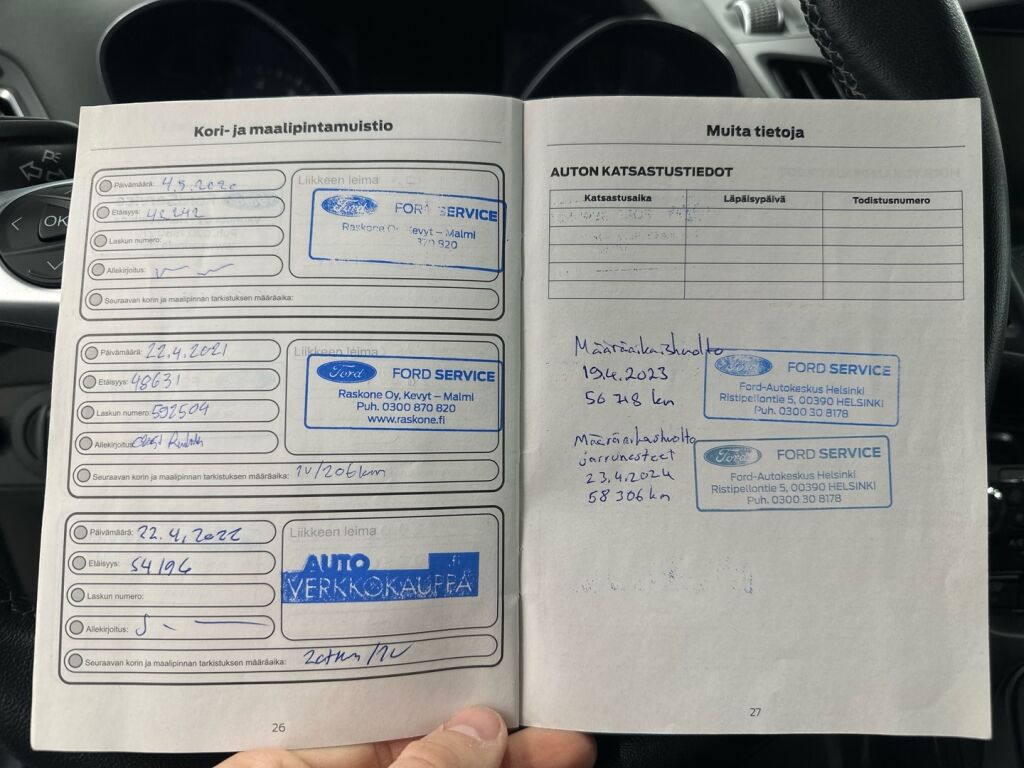 Kori- ja maalipintamuistio
Päivämäärä: 4.5.2020
Etäisyys: 42 242
Laskun numero:
Allekirjoitus:
Seuraavan korin ja maalipinnan tarkistuksen määräaika:
Liikkeen leima
Ford FORD SERVICE
Raskone Oy, Kevyt – Malmi
870 820
Päivämäärä: 22.4.2021
Etäisyys: 48631
Laskun numero: 592504
Allekirjoitus:
Seuraavan korin ja maalipinnan tarkistuksen määräaika: 1v/20tkm
Liikkeen leima
Ford FORD SERVICE
Raskone Oy, Kevyt – Malmi
Puh. 0300 870 820
www.raskone.fi
Päivämäärä: 22.4.2022
Etäisyys: 54196
Laskun numero:
Allekirjoitus:
Seuraavan korin ja maalipinnan tarkistuksen määräaika: 20tkm/1v
Liikkeen leima
AUTO
VERKKOKAUPPA
26
Muita tietoja
AUTON KATSASTUSTIEDOT
Katsastusaika Läpäisypäivä Todistusnumero
Määräaikaishuolto
19.4.2023
56 718 km
Ford FORD SERVICE
Ford-Autokeskus Helsinki
Ristipellontie 5, 00390 HELSINKI
Puh. 0300 30 8178
Määräaikaishuolto
jarrunesteet
23.4.2024
58 306 km
Ford FORD SERVICE
Ford-Autokeskus Helsinki
Ristipellontie 5, 00390 HELSINKI
Puh. 0300 30 8178
27
OK